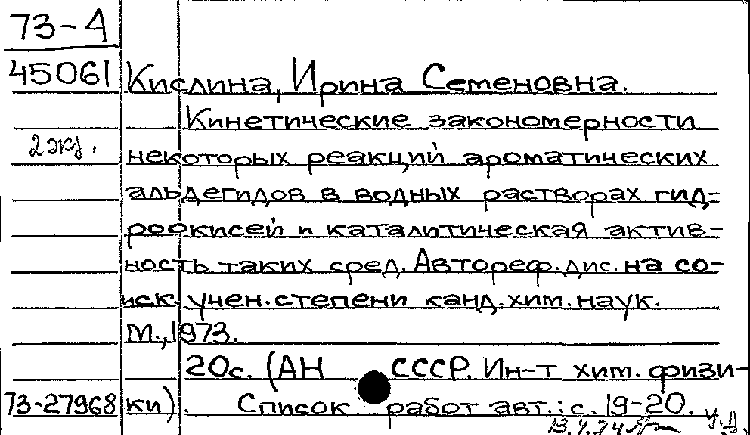 73-А
45061 Кислина, Ирина Семеновна.
Кинетические закономерности
2 экз. некоторых реакций ароматических
альдегидов в водных растворах гид-
роокисей и каталитическая актив-
ность таких сред. Автореф. дис. на со-
иск. учен. степени канд. хим. наук.
М., 1973.
20с. (АН СССР. Ин-т хим. физи-
73-27968 ки). Список работ авт.: с. 19-20.